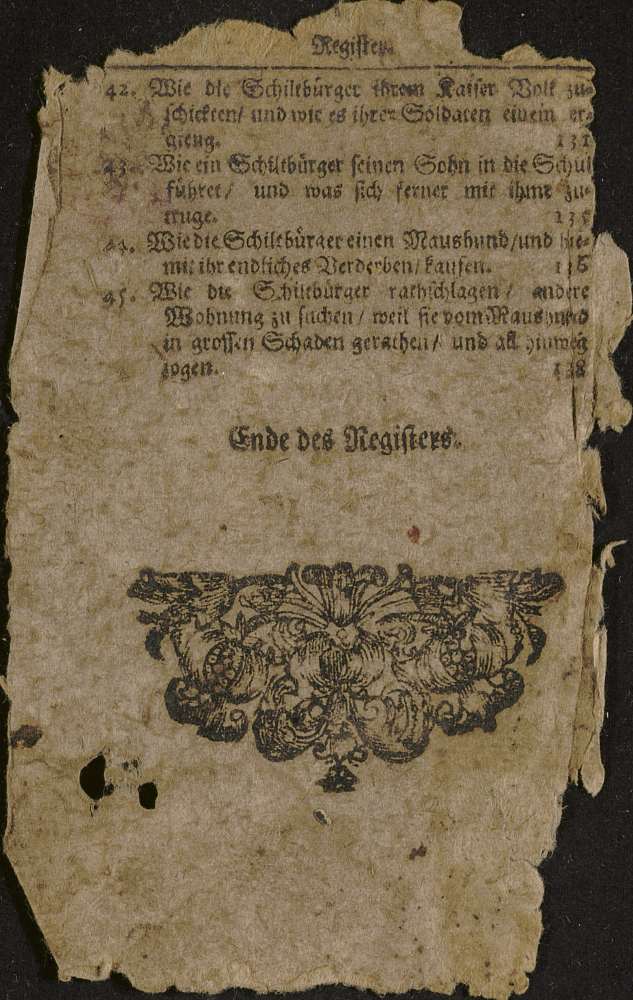 Register.
42. Wie die Schiltbürger ihrem Kaiser Volk zu-
schickten/ und wie es ihrer Soldaten eidem er-
gieng. 131
43. Wie ein Schiltbürger seinen Sohn in die Schul
führet/ und was sich ferner mit ihme zu-
truge. 135
44. Wie die Schiltbürger einen Maushund/und hie-
mit ihr endliches Verderben/kaufen. 136
45. Wie die Schiltbürger rathschlagen/ andere
Wohnung zu suchen/ weil sie vom Maushund
in grossen Schaden gerathen/ und all hinweg
zogen. 138
Ende des Registers.